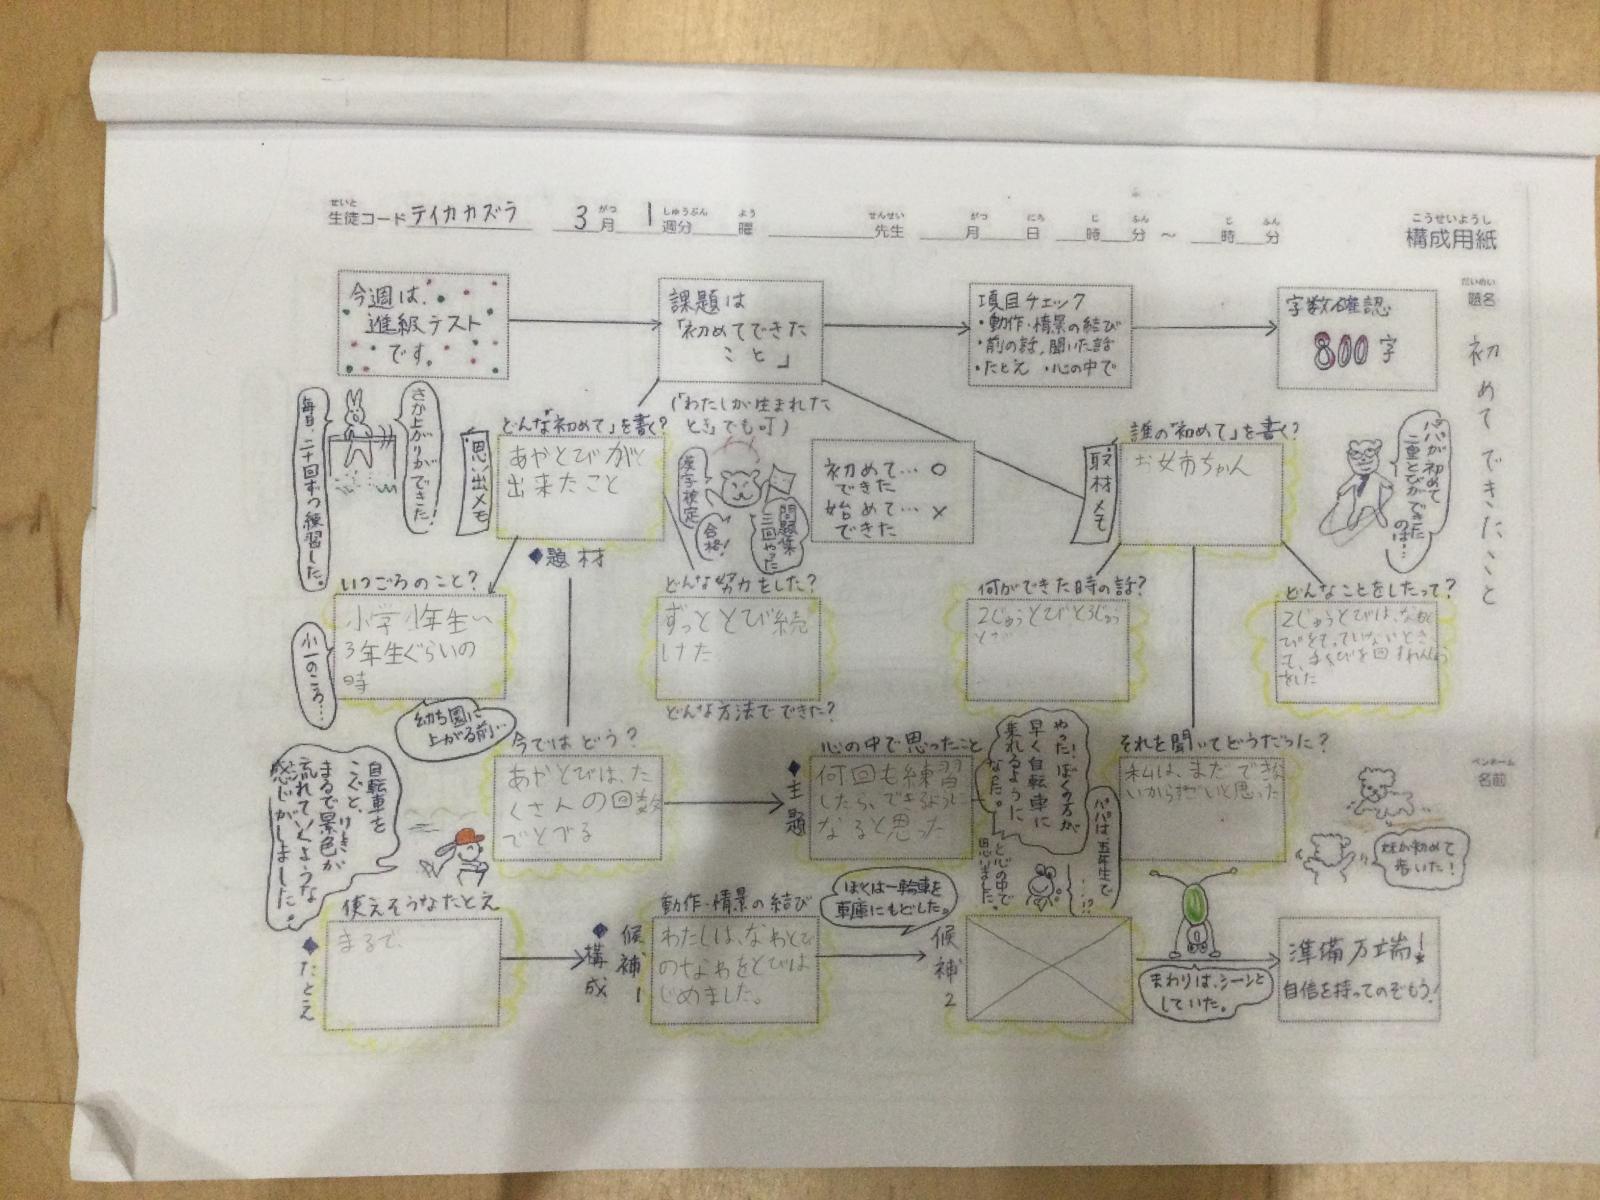 せいと
生徒コード テイカカズラ 3月 1週分 曜 先生 月 日 時 分 ~ 時 分
こうせいようし
構成用紙
だいめい
題名
初めてできたこと
ペンネーム
名前
今週は、
進級テスト
です。
課題は
「初めてできた
こと」
項目チェック
・動作・情景の結び
・前の話、聞いた話
・たとえ ・心の中で
字数確認
800字
(「わたしが生まれた
とき」でも可)
毎日、二十回ずつ練習した。
さか上がりができた。
思い出メモ
どんな「初めて」を書く?
あやとびがで
出来たこと
◆題材
漢字検定
合格!
問題集
三回やった
初めて…○
できた
始めて…×
できた
取材メモ
誰の「初めて」を書く?
お姉ちゃん
パパが初めて
二重とびができた
のは…
いつごろのこと?
小学1年生い
3年生ぐらいの
時
小一のころ…
幼ち園に
上がる前…
どんな努力をした?
ずっととび続
けた
どんな方法でできた?
何ができた時の話?
2じゅうとびと3じゅう
とび
どんなことをしたって?
2じゅうとびは、なわと
びをもっていないとき
て、手くびを回すれんしゅう
をした
今ではどう?
あやとびは、た
くさんの回数
でとべる
◆主題
心の中で思ったこと
何回も練習
したら、できるように
なると思った
やった!ぼくの方が
早く自転車に
乗れるように
なった。
と心の中で
思いました。
パパは、五年生で
…!?
それを聞いてどうだった?
私は、まだできな
いからすごいと思った
妹が初めて
歩いた!
自転車を
こぐと、けしきが
まるで景色が
流れていくような
感じがしました。
◆たとえ
使えそうなたとえ
まるで、
◆構成
候補1
動作・情景の結び
わたしは、なわとび
のなわをとびは
じめました。
ぼくは一輪車を
車庫にもどした。
候補2
まわりは、シーンと
していた。
準備万端!
自信を持ってのぞもう!